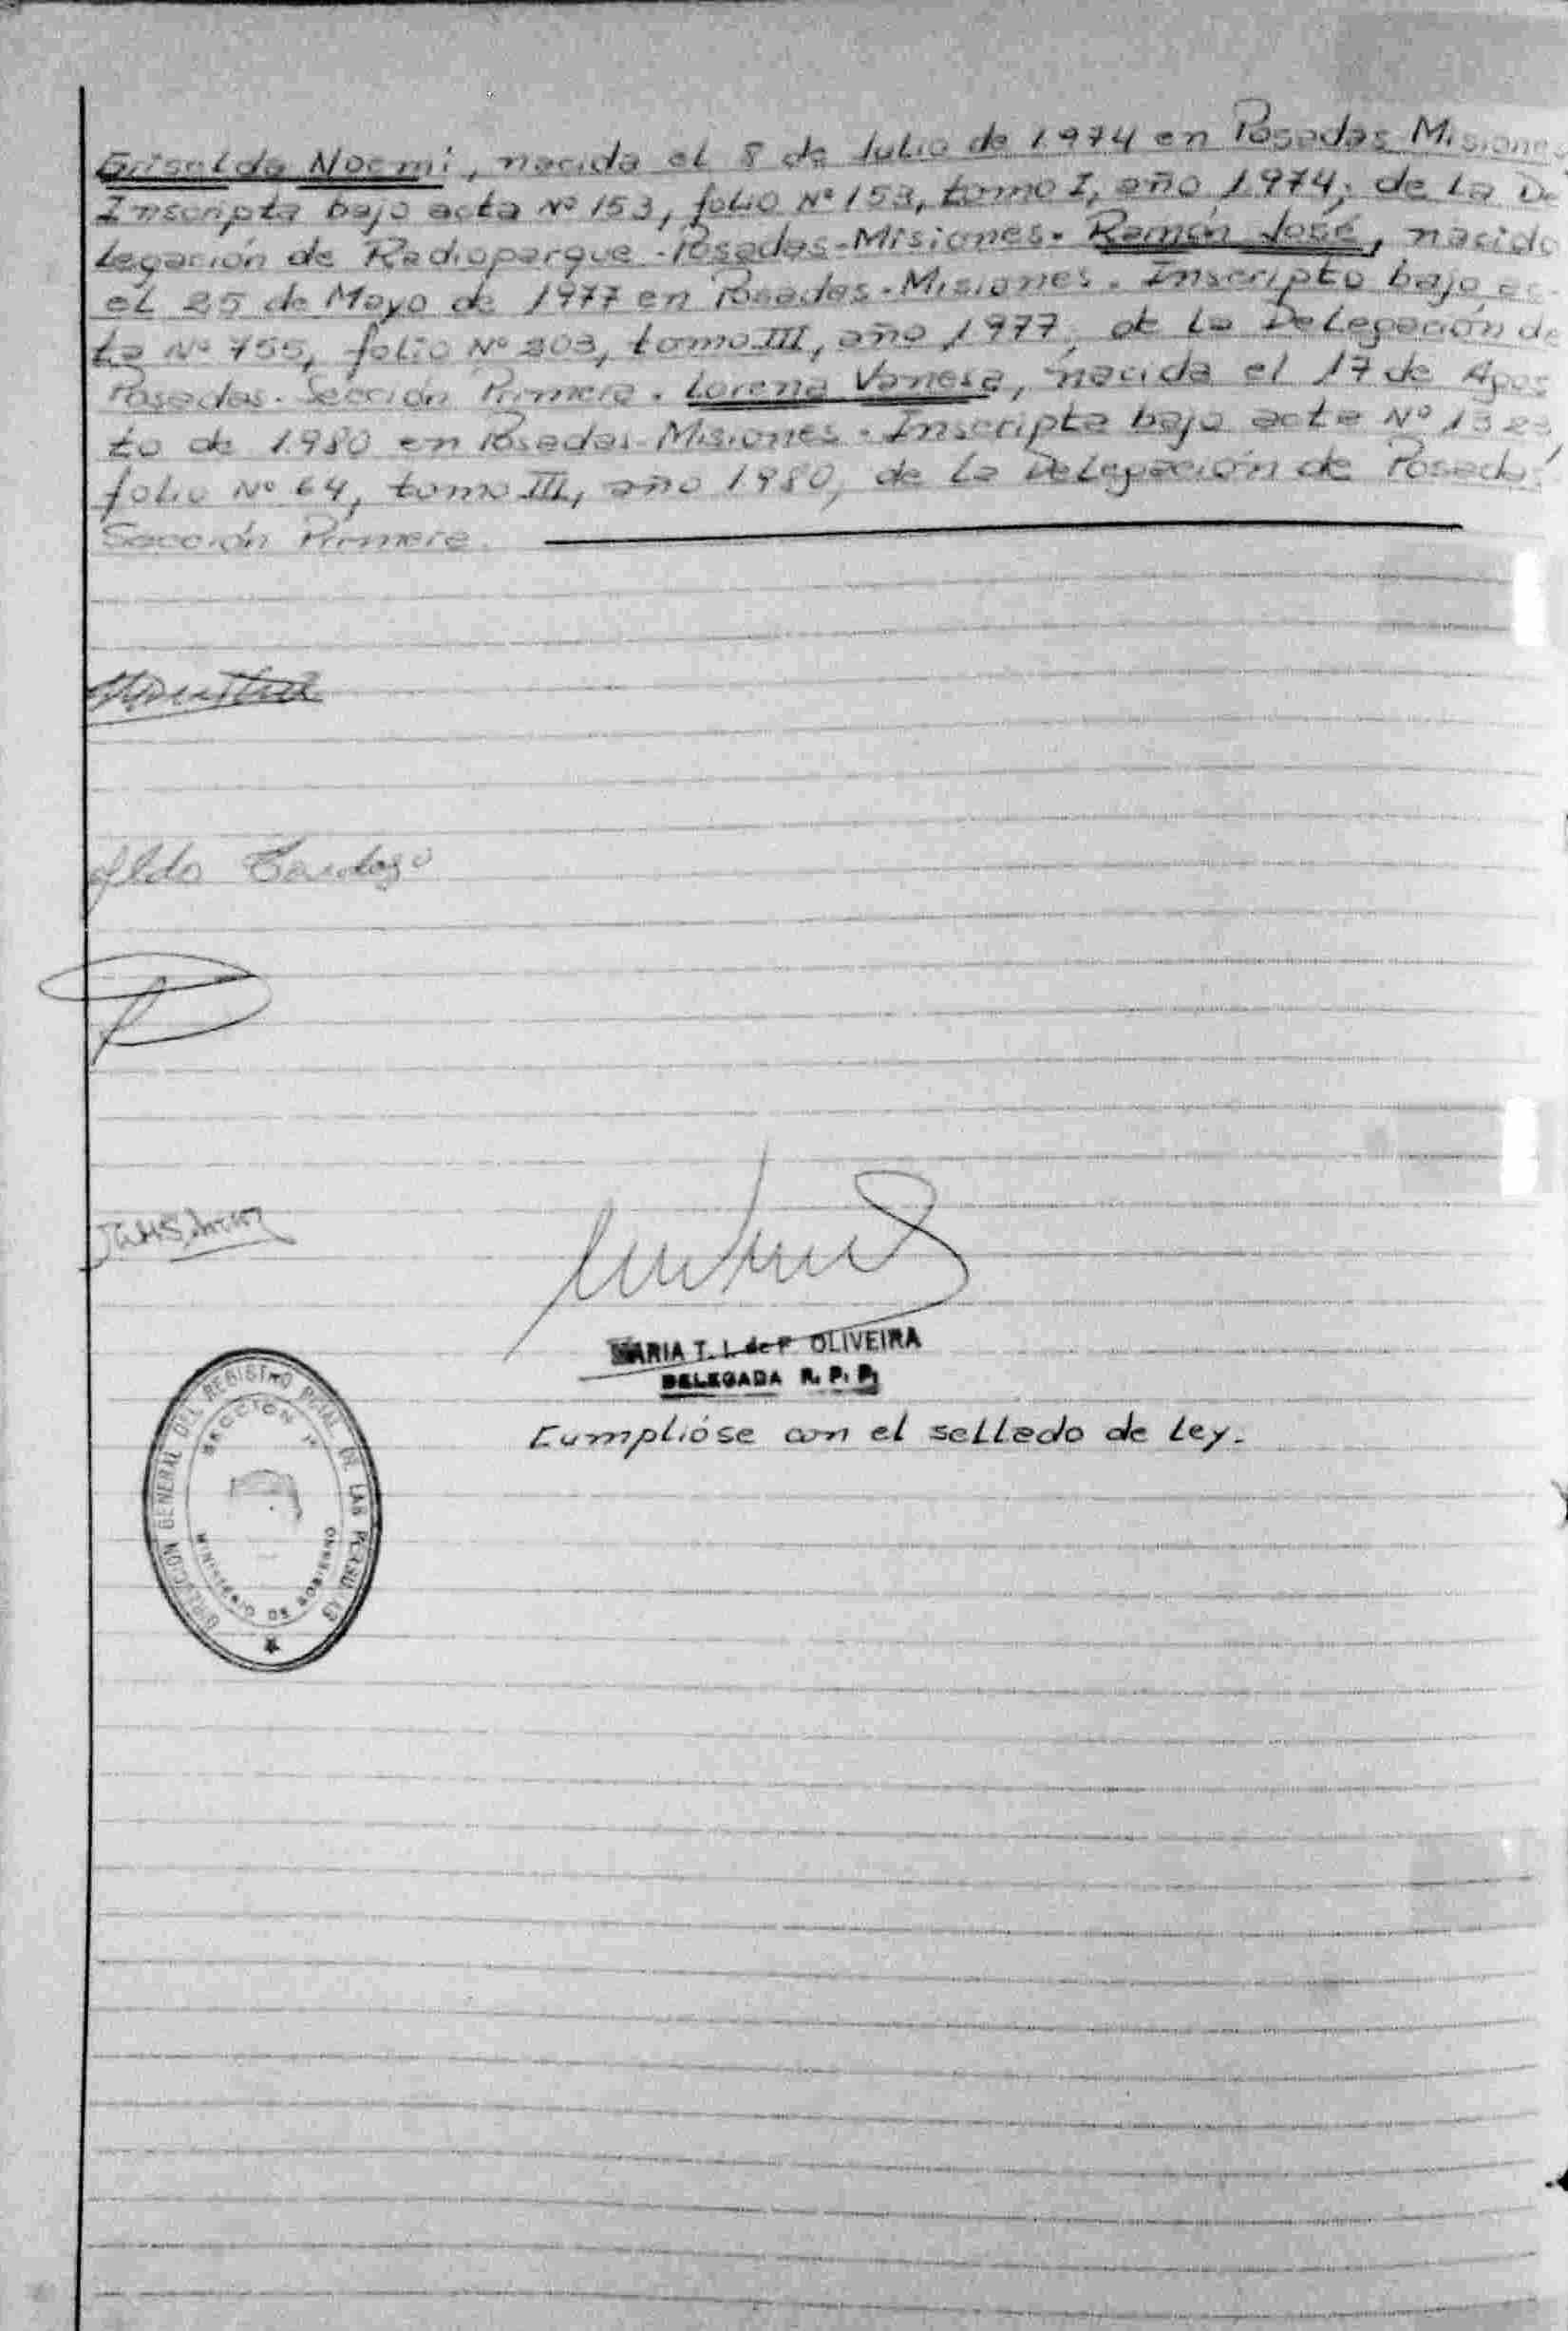 Griselda Noemi, nacida el 8 de Julio de 1974 en Posadas Misiones
Inscripta bajo acta Nº 153, folio Nº 153, tomo I, año 1974; de La De
Legación de Radioparque - Posadas - Misiones. Ramón José, nacido
el 25 de Mayo de 1977 en Posadas - Misiones. Inscripto bajo ac-
ta Nº 755, folio Nº 203, tomo III, año 1977, de La Delegación de
Posadas - Sección Primera. Lorena Vanesa, nacida el 17 de Agos
to de 1980 en Posadas - Misiones. Inscripta bajo acta Nº 1323,
folio Nº 64, tomo III, año 1980, de La Delegación de Posadas
Sección Primera.
Aldo
MARIA T. I. de P. OLIVEIRA
DELEGADA R. P. P.
Cumplióse con el sellado de Ley.
DIRECCION GENERAL DEL REGISTRO PCIAL DE LAS PERSONAS
SECCION 1ª
MINISTERIO DE GOBIERNO